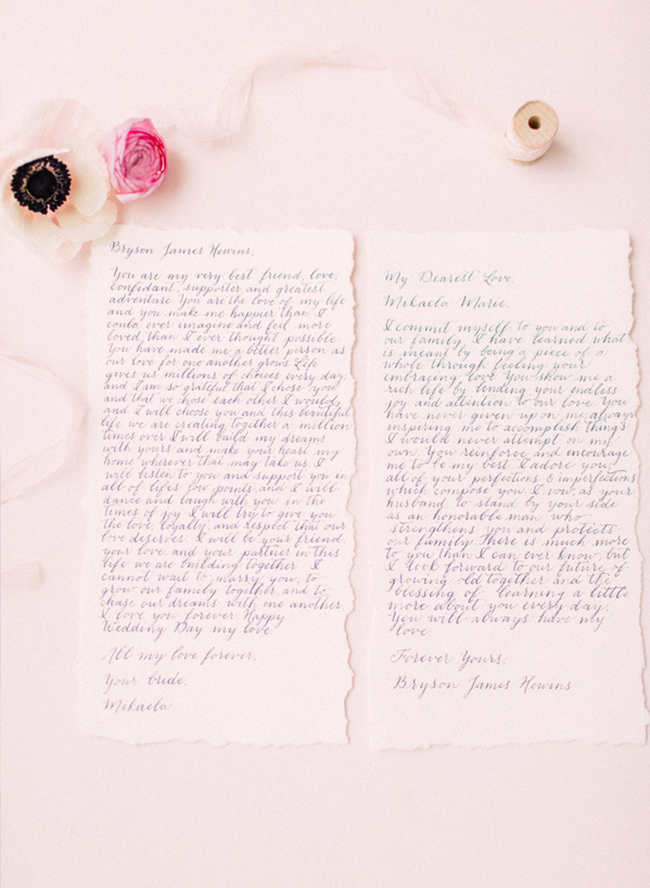 Bryson James Hewins,
You are my very best friend, love,
confidant, supporter and greatest
adventure. You are the love of my life
and you make me happier than I
could ever imagine and feel more
loved than I ever thought possible.
You have made me a better person as
our love for one another grows. Life
gives us millions of choices every day,
and I am so grateful that I chose you
and that we chose each other. I would,
and I will choose you and this beautiful
life we are creating together a million
times over. I will build my dreams
with yours and make your heart my
home wherever that may take us. I
will listen to you and support you in
all of life's low points and I will
dance and laugh with you in the
times of joy. I will try to give you
the love, loyalty, and respect that our
love deserves. I will be your friend,
your love, and your partner in this
life we are building together. I
cannot wait to marry you, to
grow our family together and to
chase our dreams with one another.
I love you forever. Happy
Wedding Day my love.
All my love forever,
Your bride,
Mikaela
My Dearest Love,
Mikaela Marie,
I commit myself to you and to
our family. I have learned what
is meant by being a piece of a
whole through feeling your
embracing love. You show me a
rich life by lending your endless
joy and attention to our love. You
have never given up on me, always
inspiring me to accomplish things
I would never attempt on my
own. You reinforce and encourage
me to be my best. I adore you,
all of your perfections & imperfections
which compose you. I vow, as your
husband to stand by your side
as an honorable man, who
strengthens you and protects
our family. There is much more
to you than I can ever know, but
I look forward to our future of
growing old together and the
blessing of learning a little
more about you every day.
You will always have my
love.
Forever Yours,
Bryson James Hewins